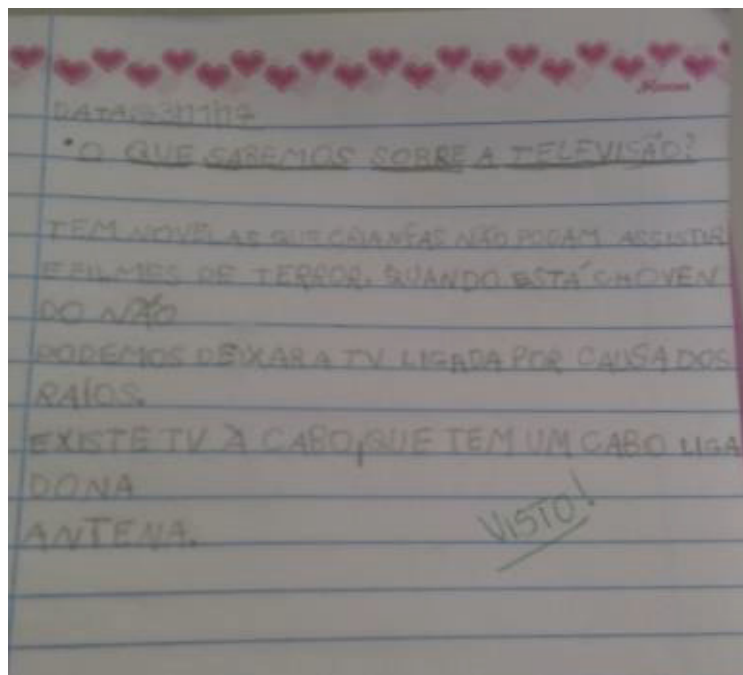 DATA:23/11/17
• O QUE SABEMOS SOBRE A TELEVISÃO?
TEM NOVELAS QUE CRIANÇAS NÃO PODAM ASSISTIR
E FILMES DE TERROR. QUANDO ESTÁ CHOVEN
DO NÃO
PODEMOS DEIXAR A TV LIGADA POR CAUSA DOS
RAIOS.
EXISTE TV À CABO, QUE TEM UM CABO LIGA
DO NA
ANTENA.
VISTO!